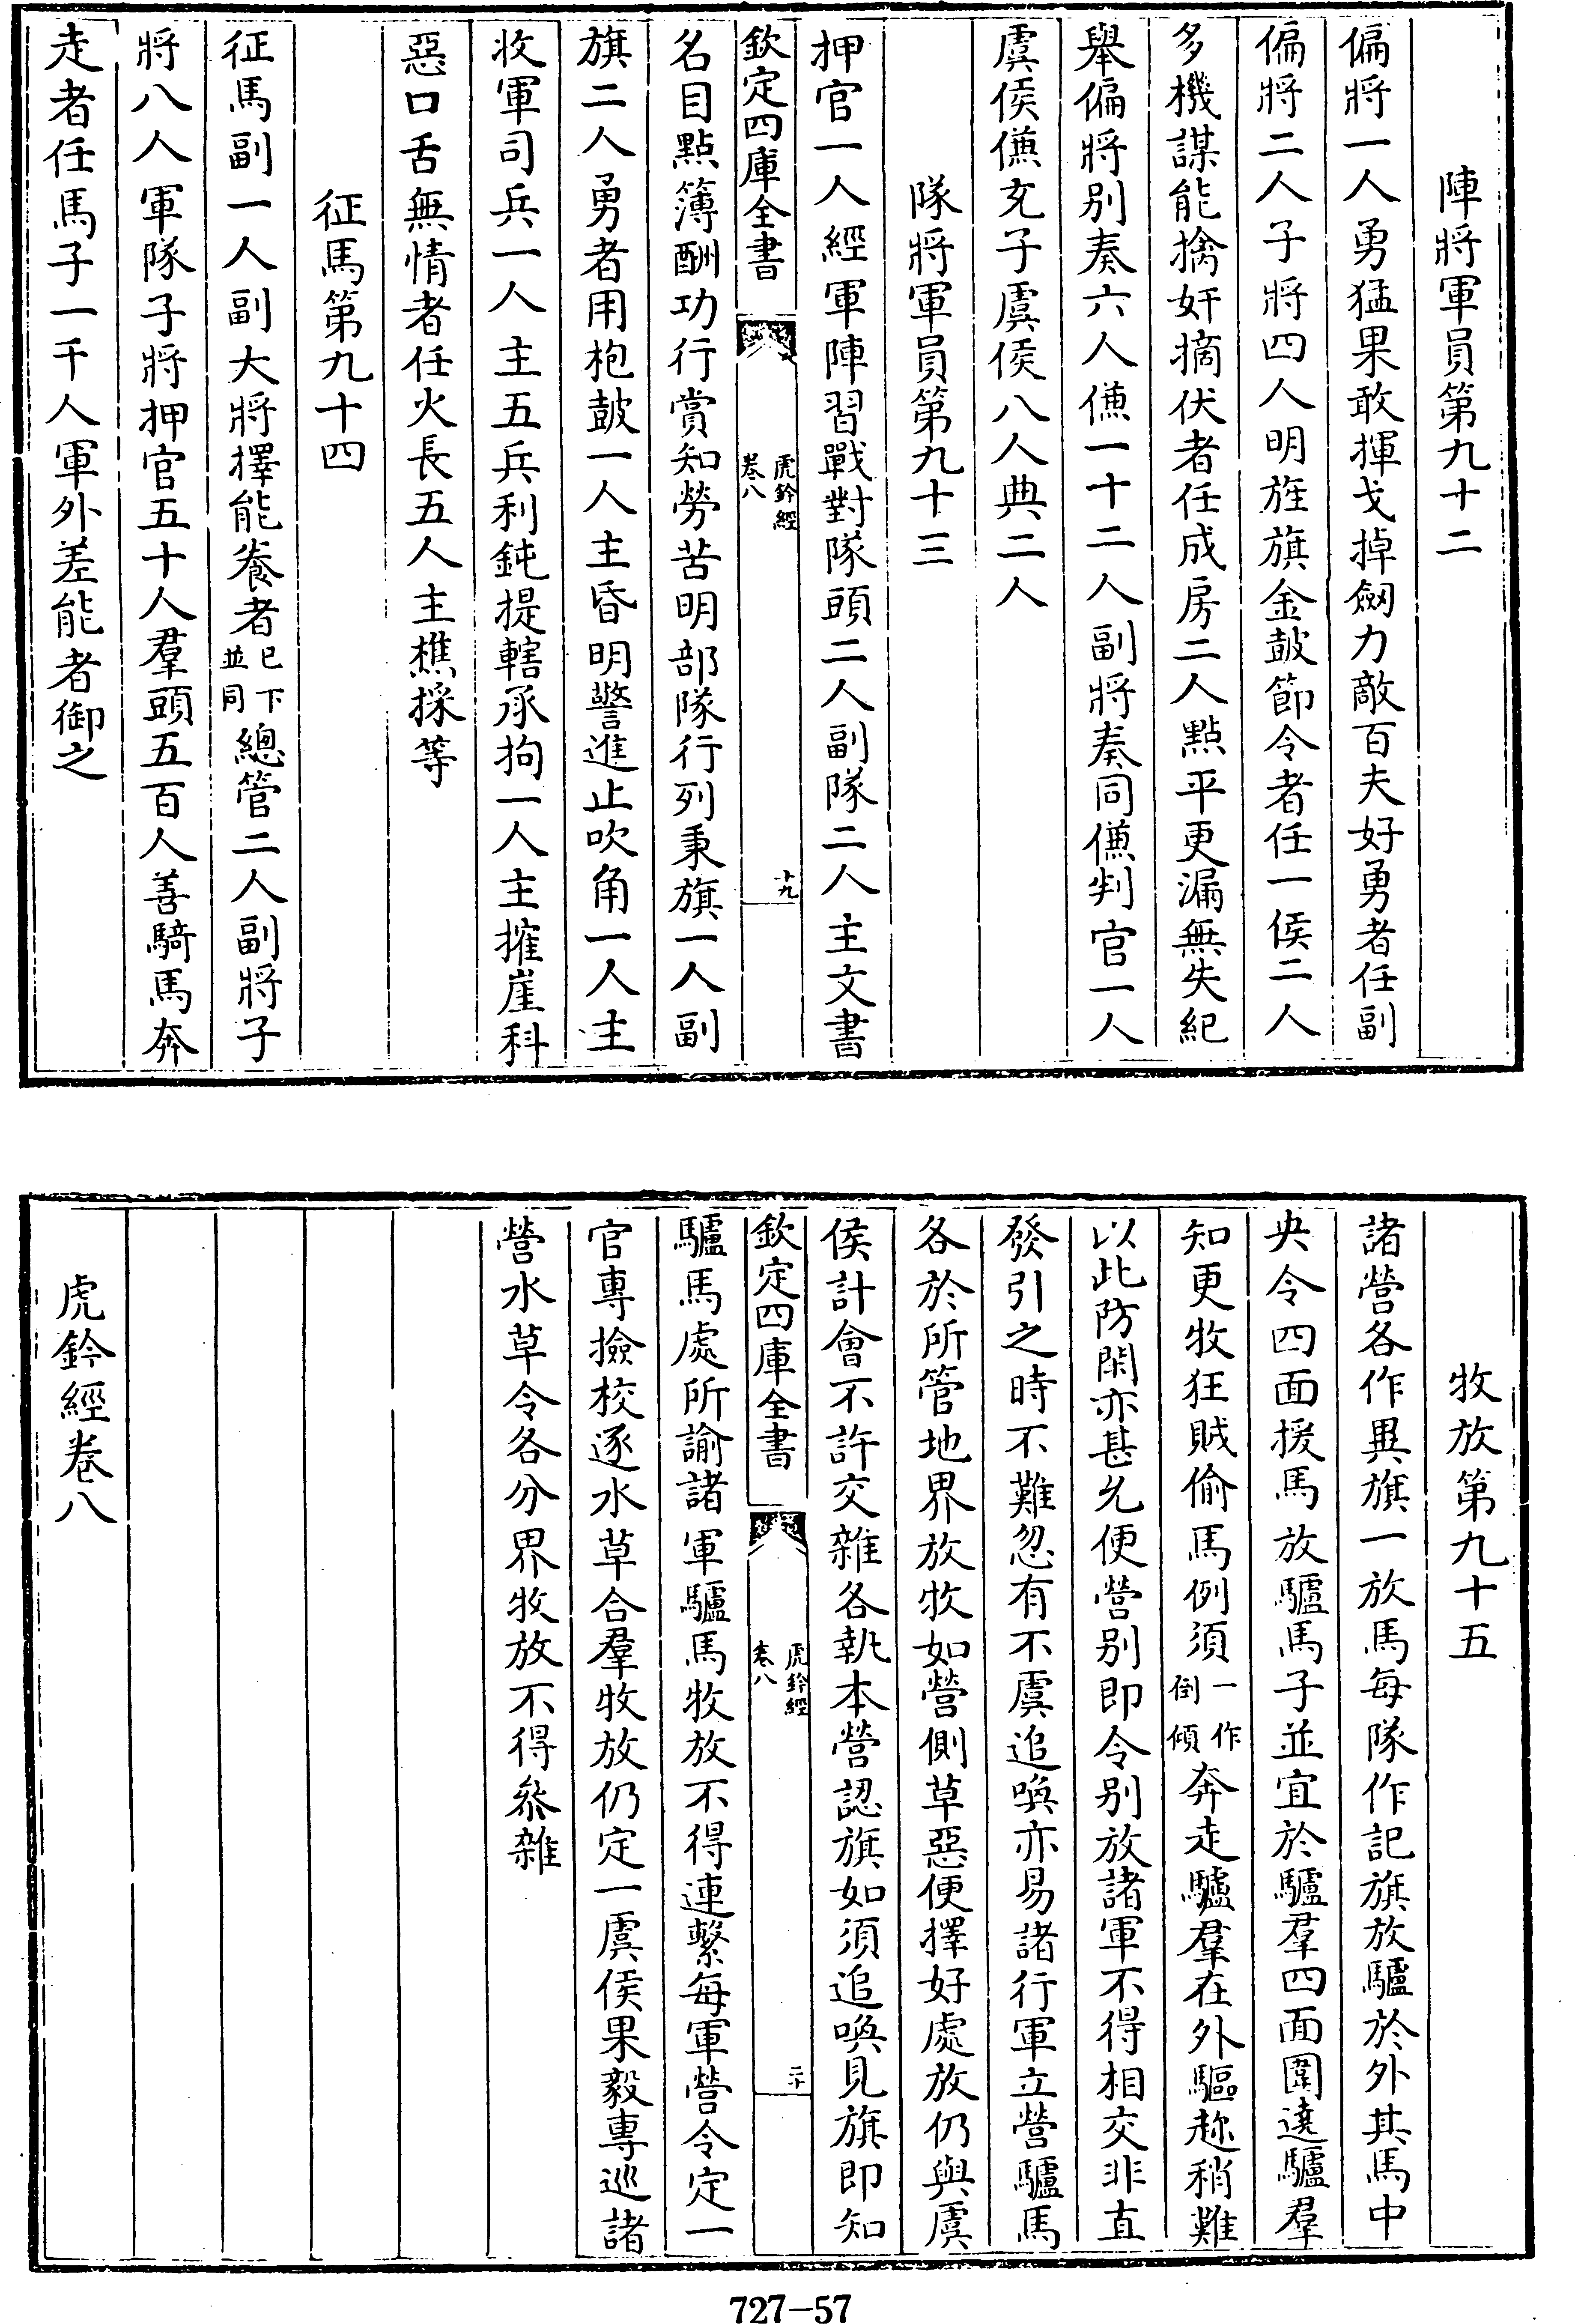 陣將軍員第九十二
偏將一人勇猛果敢揮戈掉劒力敵百夫好勇者任副
偏將二人子將四人明旌旗金鼓節令者任一侯二人
多機謀能擒奸摘伏者任成房二人點平更漏無失紀
舉偏將别奏六人傔一十二人副將奏同傔判官一人
虞侯傔充子虞侯八人典二人
隊將軍員第九十三
押官一人經軍陣習戰對隊頭二人副隊二人主文書
欽定四庫全書
虎鈐經
卷八
十九
名目點簿酬功行賞知勞苦明部隊行列秉旗一人副
旗二人勇者用枹鼓一人主昏明警進止吹角一人主
收軍司兵一人主五兵利鈍提轄承拘一人主摧崖科
惡口舌無情者任火長五人主樵採等
征馬第九十四
征馬副一人副大將擇能養者已下並同總管二人副將子
將八人軍隊子將押官五十人羣頭五百人善騎馬奔
走者任馬子一千人軍外差能者御之
牧放第九十五
諸營各作異旗一放馬每隊作記旗放驢於外其馬中
央令四面援馬放驢馬子並宜於驢羣四面圍遶驢羣
知更牧狂賊偷馬例須一作倒傾奔走驢羣在外驅趂稍難
以此防閑亦甚允便營别即令别放諸軍不得相交非直
發引之時不難忽有不虞追喚亦易諸行軍立營驢馬
各於所管地界放牧如營側草惡便擇好處放仍與虞
侯計會不許交雜各執本營認旗如須追喚見旗即知
欽定四庫全書
虎鈐經
卷八
二十
驢馬處所諭諸軍驢馬牧放不得連繫每軍營令定一
官專撿校逐水草合羣牧放仍定一虞侯果毅專巡諸
營水草令各分界牧放不得叅雜
虎鈐經卷八
727—57